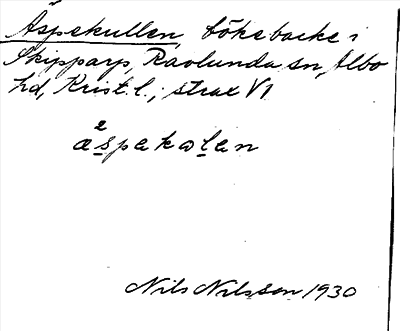 Äspekullen, bökebacke i
Skipparp, Ravlunda sn, Albo
hd, Krist. l.; strax V1
a²spekwlen
Nils Nilsson 1930